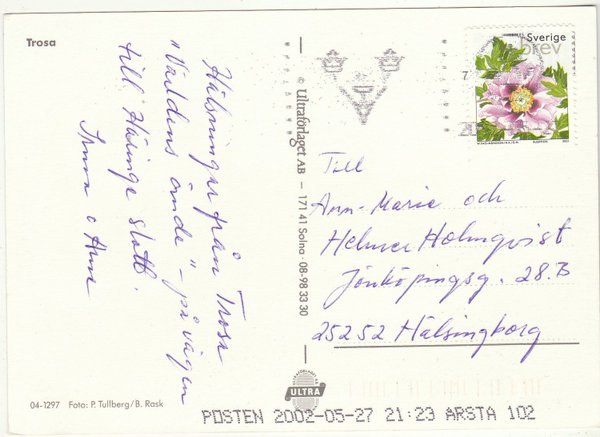 Trosa
Hälsningar från Trosa
"Världens ände" - på vägen
till Häringe slott.
© Ultraförlaget AB — 171 41 Solna · 08-98 33 30
Sverige
brev
7
Till
Ann-Marie och
Helmer Holmqvist
Jönköpingsg. 28.B
25252 Hälsingborg
04-1297 Foto: P. Tullberg/B. Rask
ULTRA
POSTEN 2002-05-27 21:23 ARSTA 102